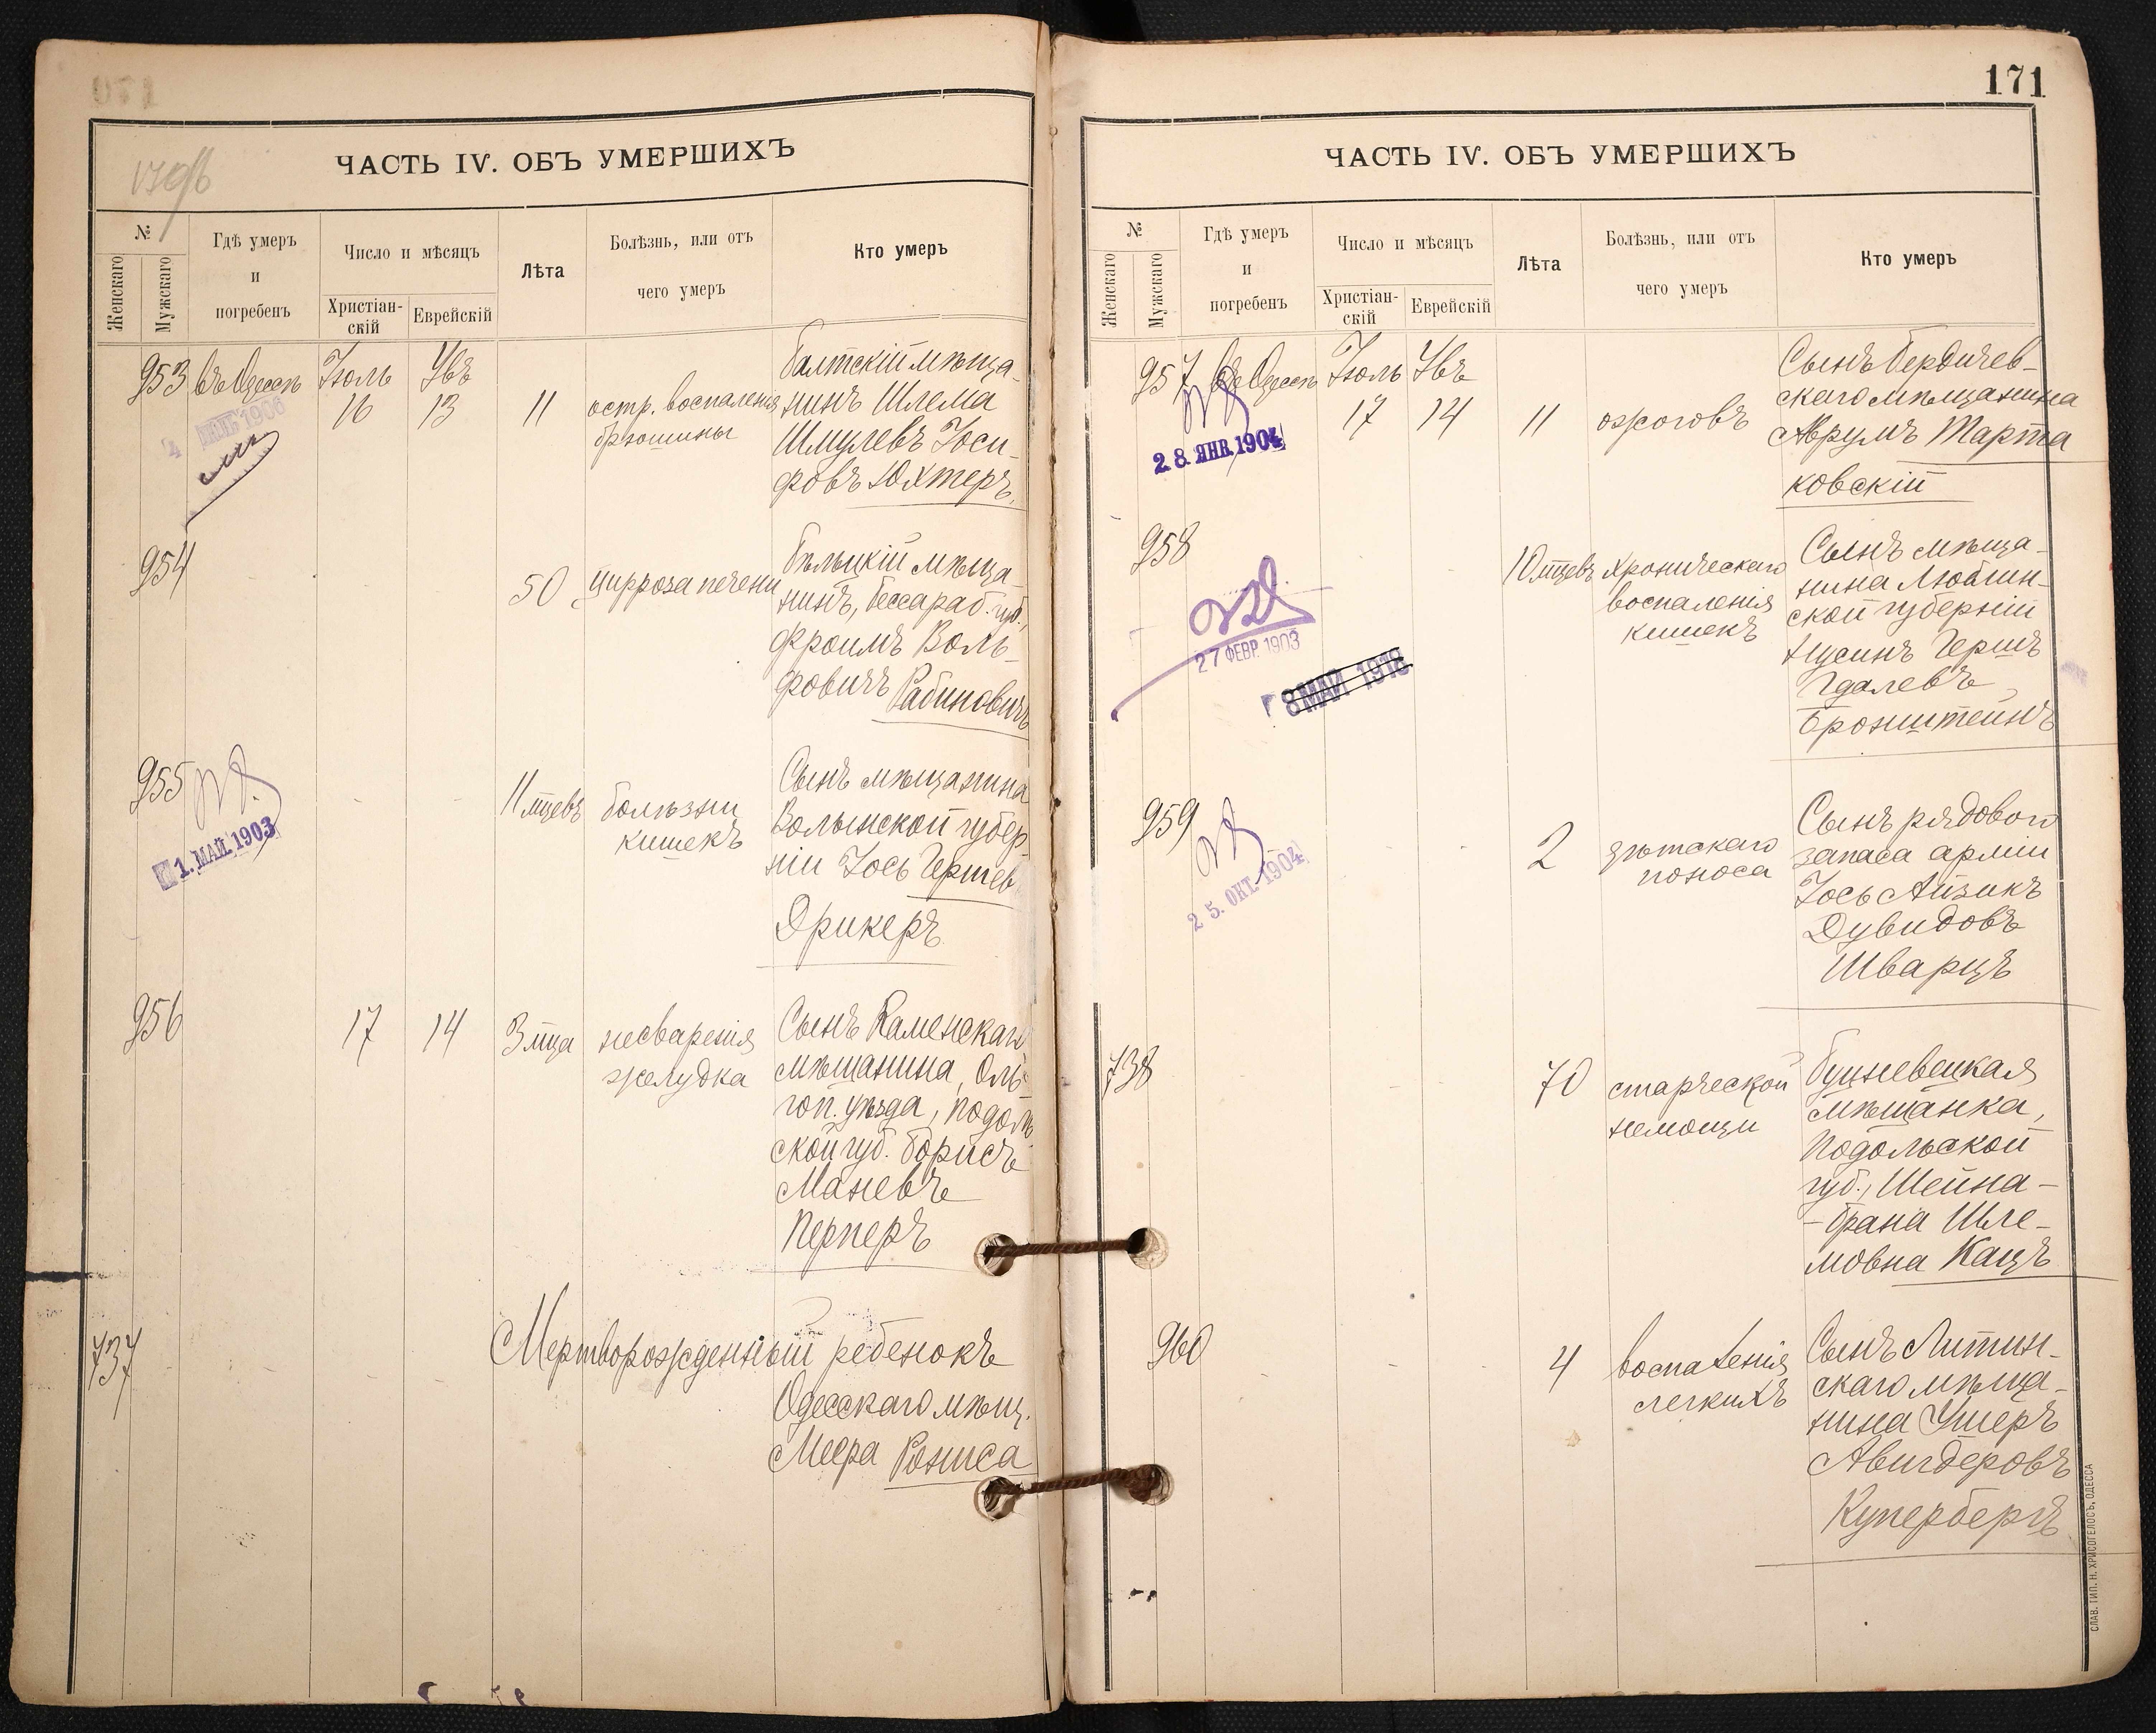 171
ЧАСТЬ IV. ОБЪ УМЕРШИХЪ
170об
№
Женскаго
Мужскаго
Гдѣ умеръ
и
погребенъ
Число и мѣсяцъ
Христіан-
скій
Еврейскій
Лѣта
Болѣзнь, или отъ
чего умеръ
Кто умеръ
953 въ Одессѣ Іюль 16 13 11
остр. воспаленія
брюшины
Балтскій мѣща-
нинъ Шлема
Шмулевъ Іоси-
фовъ Юхтеръ.
954 50 цирроза печени
Бѣльцкій мѣща-
нинъ, Бессараб. губ.,
Фроимъ Воль-
фовичъ Рабиновичъ
955 11 мцевъ болѣзни
кишекъ
1. МАЙ. 1903
Сынъ мѣщанина
Волынской губер-
ніи Іось Гершев
Дрикеръ
956 17 14 3 мца несваренія
желудка
Сынъ Каменскаго
мѣщанина, Оль-
гоп. уѣзда, Подоль-
ской губ. Борисъ
Маневъ
Перперъ
737 Мертворожденный ребенокъ
Одесскаго мѣщ.
Меера
ЧАСТЬ IV. ОБЪ УМЕРШИХЪ
№
Женскаго
Мужскаго
Гдѣ умеръ
и
погребенъ
Число и мѣсяцъ
Христіан-
скій
Еврейскій
Лѣта
Болѣзнь, или отъ
чего умеръ
Кто умеръ
957 въ Одессѣ Іюль 17 14 11 ожоговъ
28. ЯНВ. 1904
Сынъ Бердичев-
скаго мѣщанина
Аврумъ Тарта
ковскій
958 10 мцевъ хроническаго
воспаленія
кишекъ
27 ФЕВР. 1903
8 МАЙ 1918
Сынъ мѣща-
нина Люблин-
ской губерніи
Гершъ
Гдалевъ
Бронштейнъ
959 2 дѣтскаго
поноса
25. ОКТ. 1904
Сынъ рядового
запаса арміи
Іось Айзикъ
Дувидовъ
Шварцъ
738 70 старческой
немощи
мѣщанка,
Подольской
губ., Шейна-
-Брана Шле-
мовна Кацъ
960 4 воспаленія
легкихъ
Сынъ Литин-
скаго мѣща-
нина Ушеръ
Авигдеровъ
Купербергъ
СЛАВ. ТИП. Н. ХРИСОГЕЛОСЪ, ОДЕССА